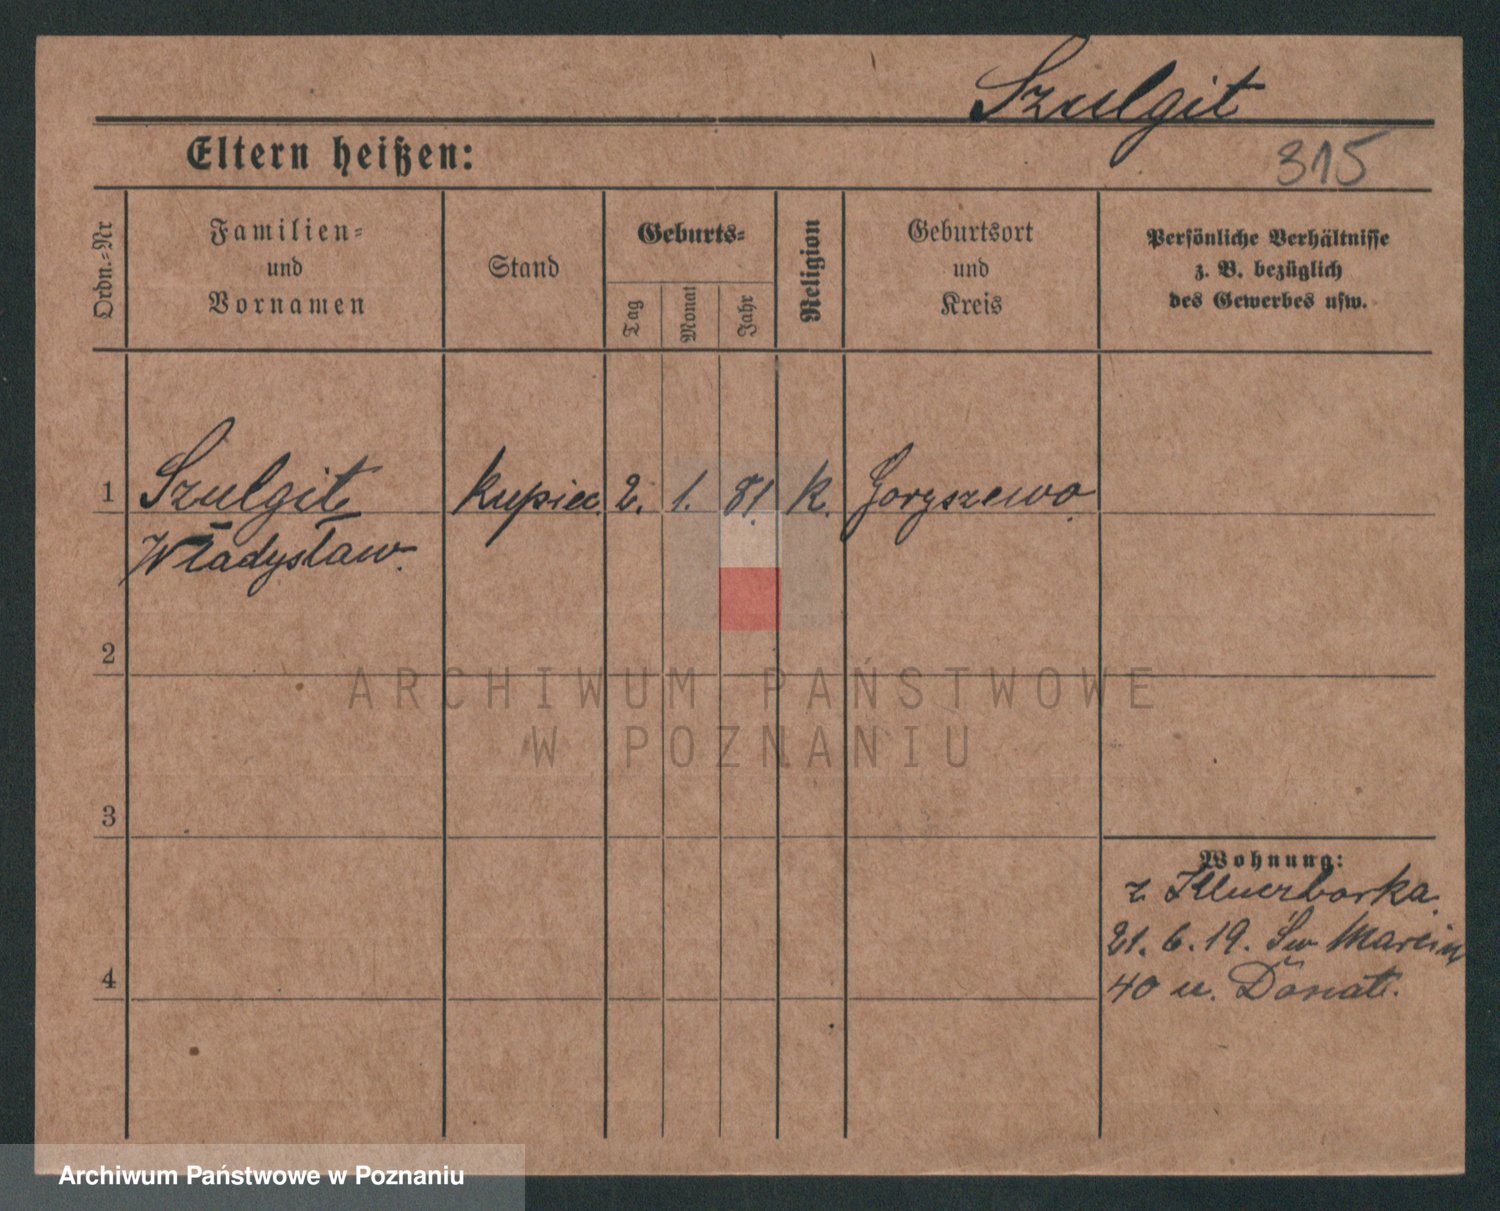 Szulgit
Eltern heißen:
315
Ordn.-Nr
Familien-
und
Vornamen
Stand
Geburts-
Tag
Monat
Jahr
Religion
Geburtsort
und
Kreis
Persönliche Verhältnisse
z. B. bezüglich
des Gewerbes usw.
1 Szulgit kupiec 2. 1. 81. k. Goryszewo
Władysław.
2
ARCHIWUM PAŃSTWOWE
W POZNANIU
3
Wohnung:
z Kluczborka.
21. 6. 19. Św Marcin
40 u. Donat.
4
Archiwum Państwowe w Poznaniu